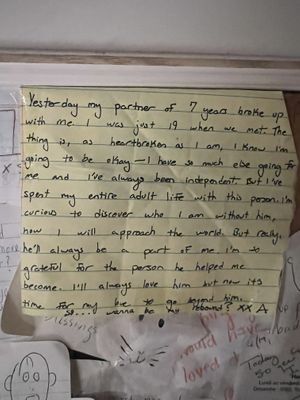 Yesterday my partner of 7 years broke up
with me. I was just 19 when we met. The
thing is, as heartbroken as I am, I know I'm
going to be okay — I have so much else going for
me and I've always been independent. But I've
spent my entire adult life with this person. I'm
curious to discover who I am without him,
how I will approach the world. But really,
he'll always be a part of me. I'm so
grateful for the person he helped me
become. I'll always love him but now its
time for my love to go beyond him.
so... wanna be my rebound? xx A
would have
loved
Today